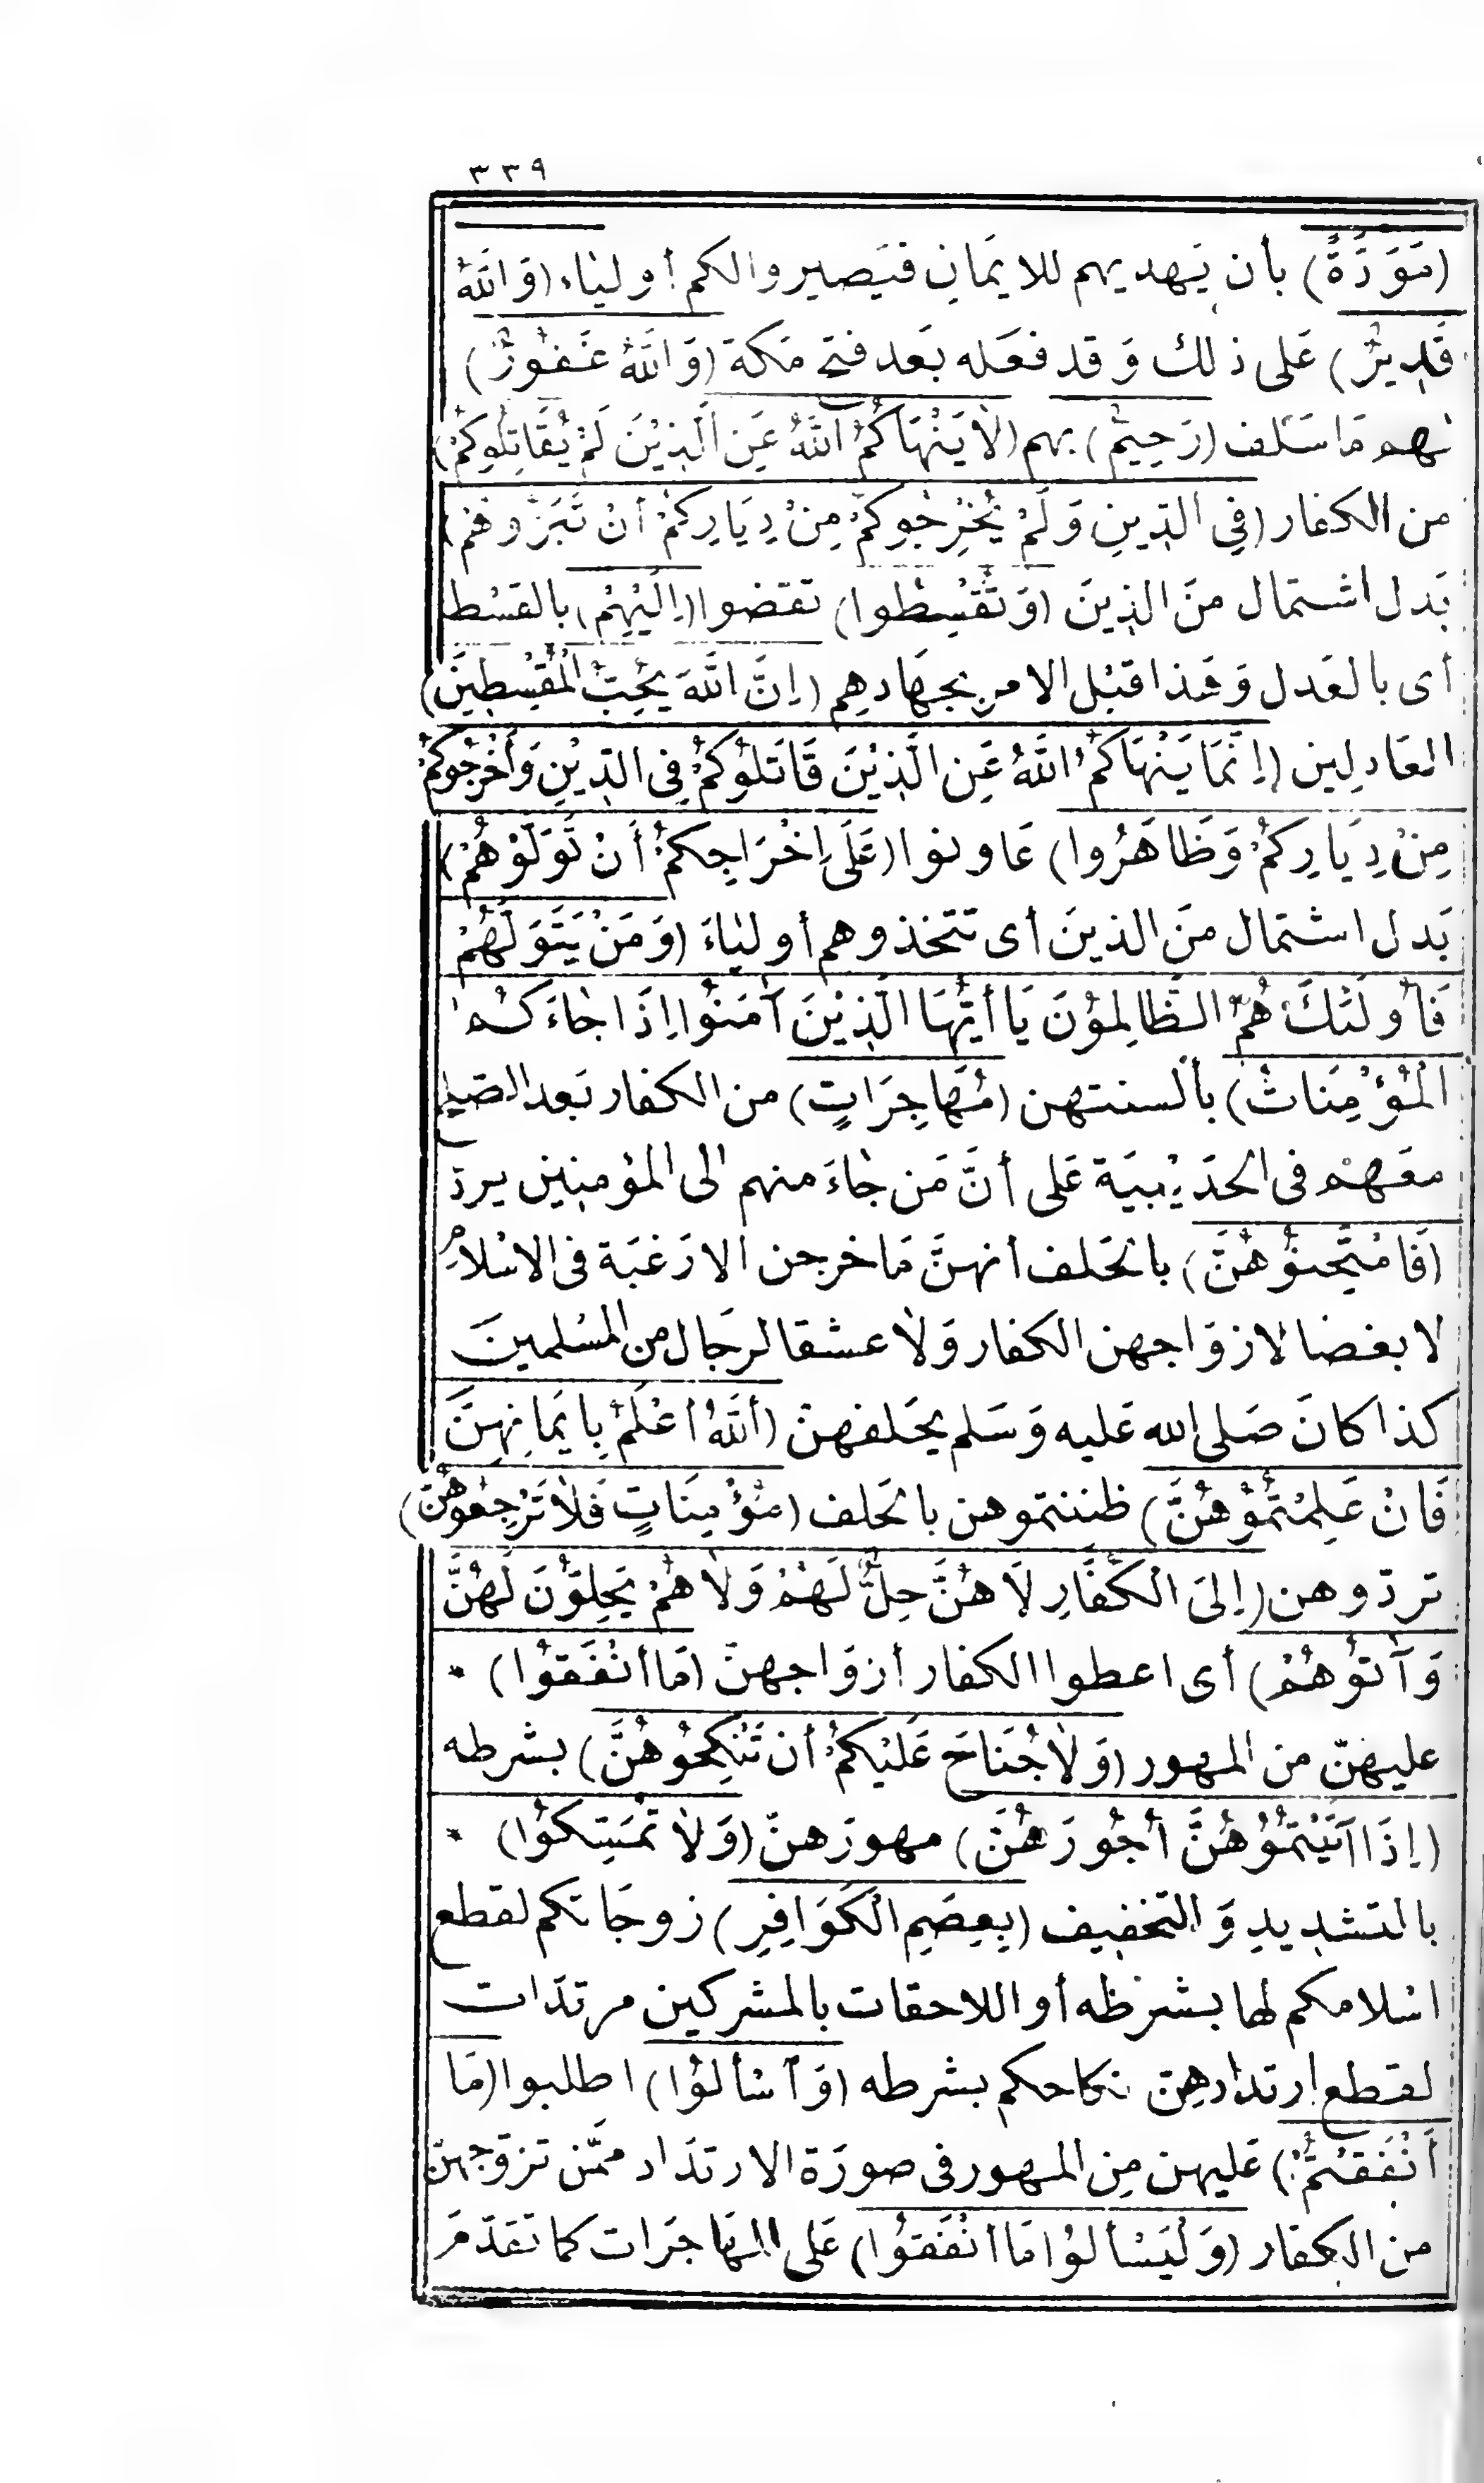 ٣٣٩
(مَوَدَّةً) بأن يَهديهم للايمَانِ فيَصيروا لكم أولياء (وَاللّٰهُ
قَدِيرٌ) عَلى ذلك وَقد فعَله بَعد فتح مَكة (وَاللّٰهُ غَفُورٌ)
لهم مَا سَلف (رَحِيمٌ) بهم (لَا يَنْهَاكُمُ اللّٰهُ عَنِ الَّذِيْنَ لَمْ يُقَاتِلُوكُمْ)
من الكفار (فِي الدِّينِ وَلَمْ يُخْرِجُوكُمْ مِنْ دِيَارِكُمْ أَنْ تَبَرُّوهُمْ)
بَدل اشتمال منَ الذينَ (وَتُقْسِطُوا) تقضوا (إِلَيْهِمْ) بالقسْط
أى بالعَدل وَهَذا قبْل الامرِ بجهَادهِم (اِنَّ اللّٰهَ يُحِبُّ الْمُقْسِطِيْنَ)
العَادلِين (اِنَّمَا يَنْهَاكُمُ اللّٰهُ عَنِ الَّذِيْنَ قَاتَلُوْكُمْ فِي الدِّيْنِ وَأَخْرَجُوكُمْ
مِنْ دِيَارِكُمْ وَظَاهَرُوا) عَاونوا (عَلَى اِخْرَاجِكُمْ أَنْ تَوَلَّوْهُمْ)
بَدل اشتمال منَ الذينَ أى تتخذوهم أوليَاءَ (وَمَنْ يَتَوَلَّهُمْ
فَأُولَئِكَ هُمُ الظَّالِمُوْنَ يَا أَيُّهَا الَّذِيْنَ آمَنُوا اِذَا جَاءَكُمُ
الْمُؤْمِنَاتُ) بألسنتهن (مُهَاجِرَاتٍ) من الكفار بَعد الصلح
معَهمْ فى الحدَيْبيَة عَلى أنَّ مَن جَاءَ منهم الى المؤمنِين يردّ
(فَامْتَحِنُوْهُنَّ) بالحَلف أنهنَّ مَا خرجن الا رَغبَة فى الاسْلامِ
لا بغضا لازوَاجهن الكفار وَلا عشقا لرجَال من المسْلمينَ
كذا كانَ صَلى الله عَليه وَسَلم يحَلفهنّ (أَللّٰهُ أَعْلَمُ بِايْمَانِهِنَّ
فَانْ عَلِمْتُمُوْهُنَّ) ظننتموهن بالحَلف (مُؤْمِنَاتٍ فَلَا تَرْجِعُوْهُنَّ)
تردّوهن (إِلَى الْكُفَّارِ لَا هُنَّ حِلٌّ لَهُمْ وَلَا هُمْ يَحِلُّوْنَ لَهُنَّ
وَآتُوْهُمْ) أى اعطوا الكفار أزوَاجهنّ (مَا أَنْفَقُوْا) *
عليهنّ من المهور (وَلَا جُنَاحَ عَلَيْكُمْ أَن تَنْكِحُوْهُنَّ) بشرطه
(اِذَا آتَيْتُمُوْهُنَّ أُجُوْرَهُنَّ) مهورَهنّ (وَلَا تُمَسِّكُوْا) *
بالتشديدِ وَالتخفيف (بِعِصَمِ الْكَوَافِرِ) زوجَاتكم لقطع
اسْلامكم لها بشرطه أو اللاحقات بالمشركين مرتدَّات
لقطع ارتدادهنّ نكاحكم بشرطه (وَاسْأَلُوْا) اطلبوا (مَا
أَنْفَقْتُمْ) عَليهن مِن المهور فى صورَة الارتدَاد ممَّن تزوَّجهنّ
من الكفار (وَلْيَسْأَلُوْا مَا أَنْفَقُوْا) عَلى المهَاجرَات كما تقَدّمَ